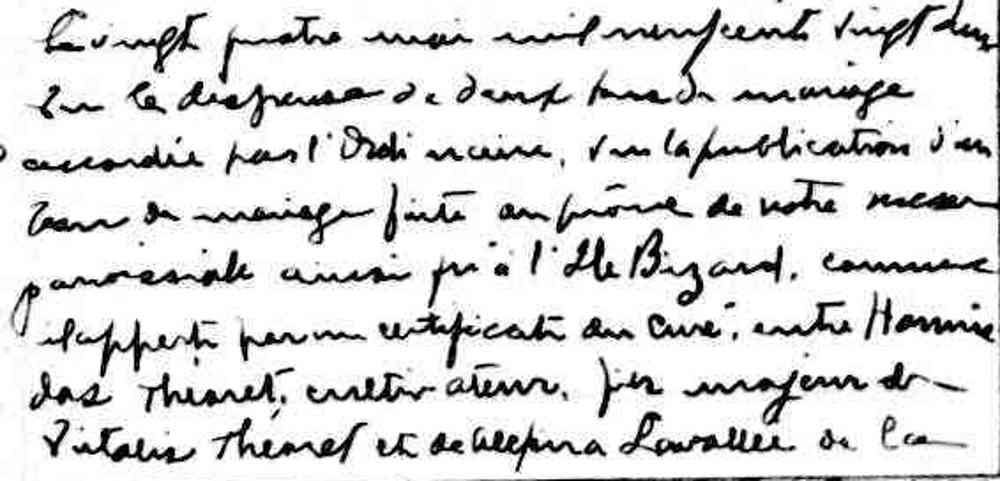 Le vingt quatre mai mil neuf cent vingt deux
Vu la dispense de deux bans de mariage
accordée par l'Ordinaire, vu la publication d'un
ban de mariage faite au prône de notre messe
paroissiale ainsi qu'à l'Ile Bizard, comme
il appert par un certificat du Curé, entre Hormis
das Théoret, cultivateur, fils majeur de
Vitalis Théoret et de Lavallée de la